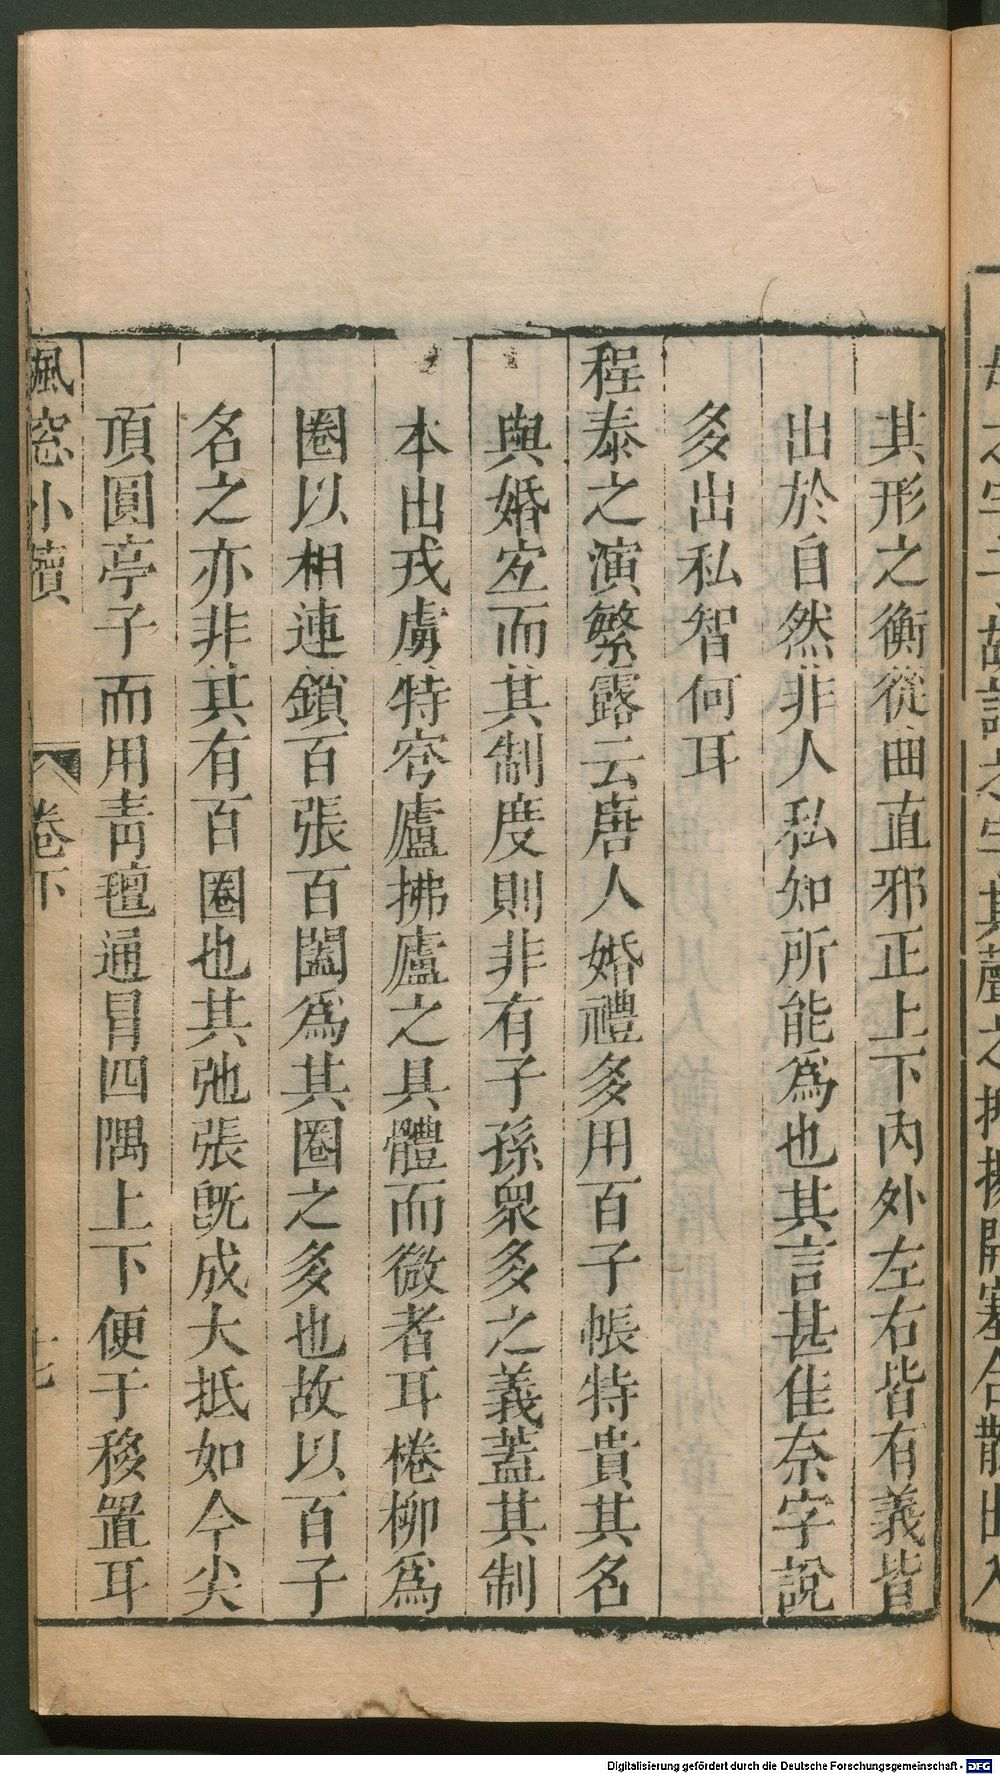 其形之衡從曲直邪正上下內外左右皆有義皆
出於自然非人私知所能爲也其言甚佳奈字說
多出私智何耳
程泰之演繁露云唐人婚禮多用百子帳特貴其名
與婚宐而其制度則非有子孫衆多之義蓋其制
本出戎虜特穹廬拂廬之具體而微者耳棬柳爲
圈以相連鎖百張百闔爲其圈之多也故以百子
名之亦非其有百圈也其弛張旣成大抵如今尖
頂圓亭子而用青氊通冒四隅上下便于移置耳
楓窓小牘 卷下 七
Digitalisierung gefördert durch die Deutsche Forschungsgemeinschaft - DFG